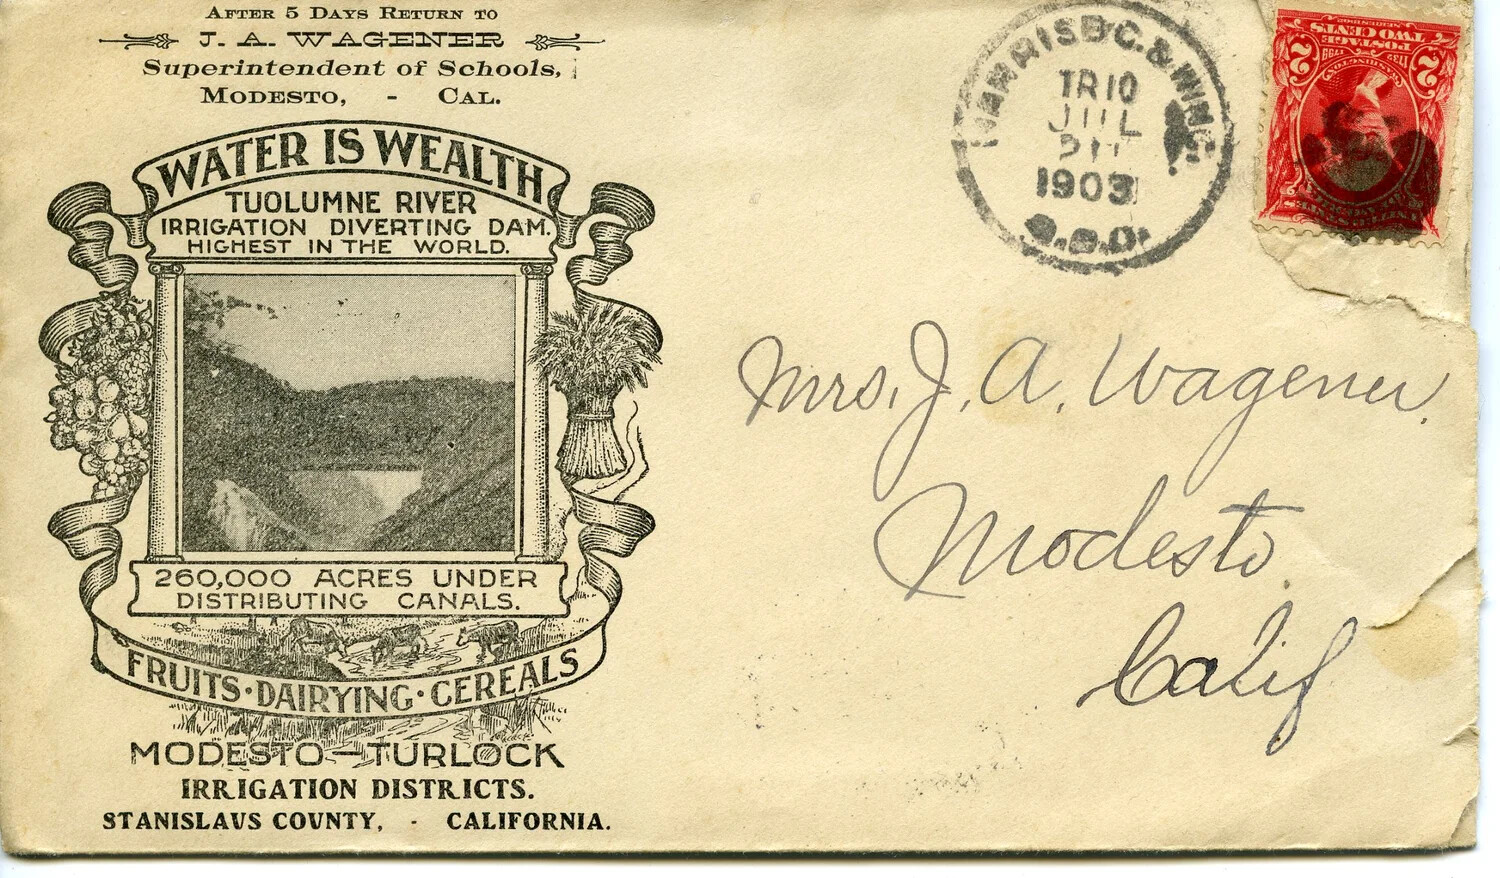 AFTER 5 DAYS RETURN TO
J. A. WAGENER
Superintendent of Schools,
MODESTO, - CAL.
WATER IS WEALTH
TUOLUMNE RIVER
IRRIGATION DIVERTING DAM.
HIGHEST IN THE WORLD.
260,000 ACRES UNDER
DISTRIBUTING CANALS.
FRUITS · DAIRYING · CEREALS
MODESTO—TURLOCK
IRRIGATION DISTRICTS.
STANISLAVS COVNTY, - CALIFORNIA.
& WMG.
TR 10
JUL
1903
R.P.O.
2 POSTAGE 2
TWO CENTS
1732 1799
WASHINGTON
Mrs. J. A. Wagener,
Modesto
Calif